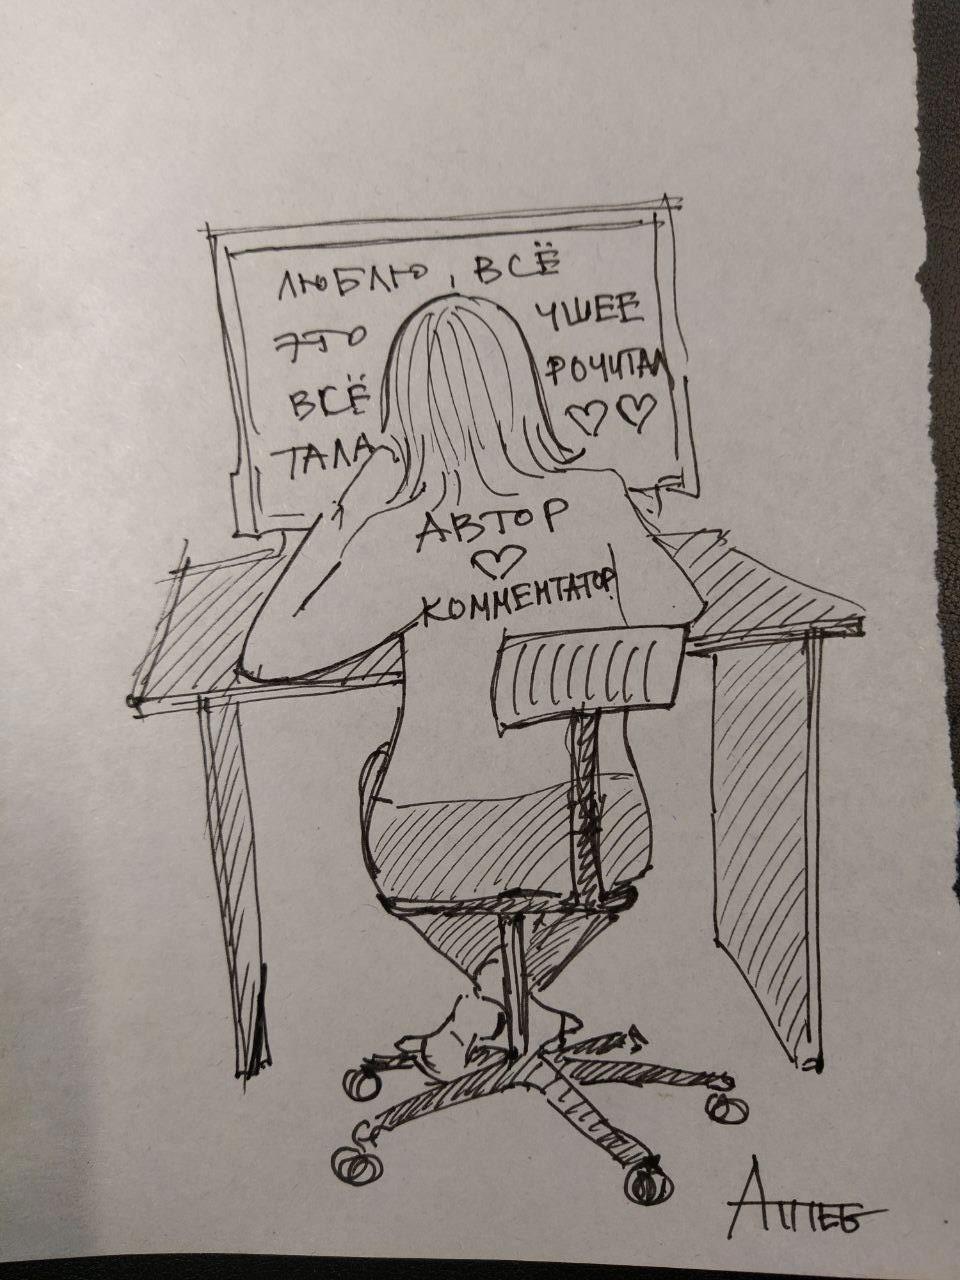 ЛЮБЛЮ, ВСЁ
ЭТО ЧШЕЕ
ВСЁ РОЧИТАЛ
ТАЛА ♡♡
АВТОР
♡
КОММЕНТАТОР